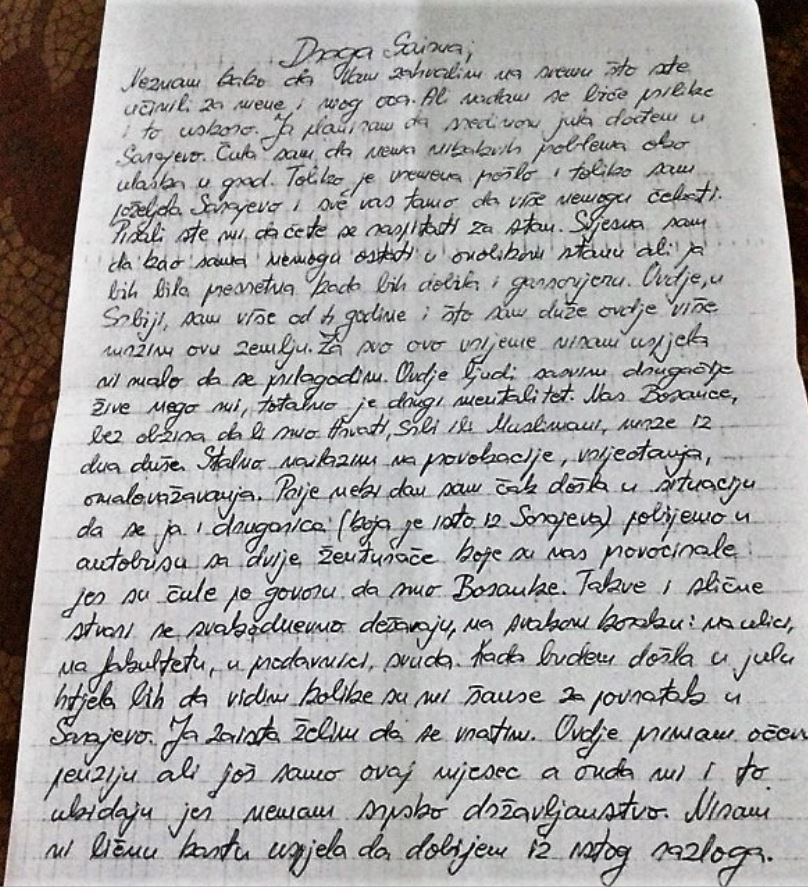 Draga Saima,
Neznam kako da Vam zahvalim na svemu što ste
učinili za mene i mog oca. Ali nadam se biće prilike
i to uskoro. Ja planiram da sredinom jula dođem u
Sarajevo. Čula sam da nema nikakvih poblema oko
ulaska u grad. Toliko je vremena prošlo i toliko sam
poželjela Sarajevo i sve vas tamo da više nemogu čekati.
Pisali ste mi da ćete se raspitati za stan. Svjesna sam
da kao sama nemogu ostati u onolikom stanu ali ja
bih bila presretna kada bih dobila i garsonjeru. Ovdje, u
Srbiji, sam više od 4 godine i što sam duže ovdje više
mrzim ovu zemlju. Za svo ovo vrijeme nisam uspjela
ni malo da se prilagodim. Ovdje ljudi sasvim drugačije
žive nego mi, totalno je drugi mentalitet. Nas Bosance,
bez obzira da li smo Hrvati, Srbi ili Muslimani, mrze iz
dna duše. Stalno nailazim na provokacije, vrijeđanja,
omalovažavanja. Prije neki dan sam čak došla u situaciju
da se ja i drugarica (koja je isto iz Sarajeva) pobijemo u
autobusu sa dvije ženturače koje su nas provocirale
jer su čule po govoru da smo Bosanke. Takve i slične
stvari se svakodnevno dežavaju, na svakom koraku: na ulici,
na fakultetu, u prodavnici, svuda. Kada budem došla u julu
htjela bih da vidim kolike su mi šanse za povratak u
Sarajevo. Ja zaista želim da se vratim. Ovdje primam očevu
penziju ali još samo ovaj mjesec a onda mi i to
ukidaju jer nemam srpsko državljanstvo. Nisam
ni ličnu kartu uspjela da dobijem iz istog razloga.